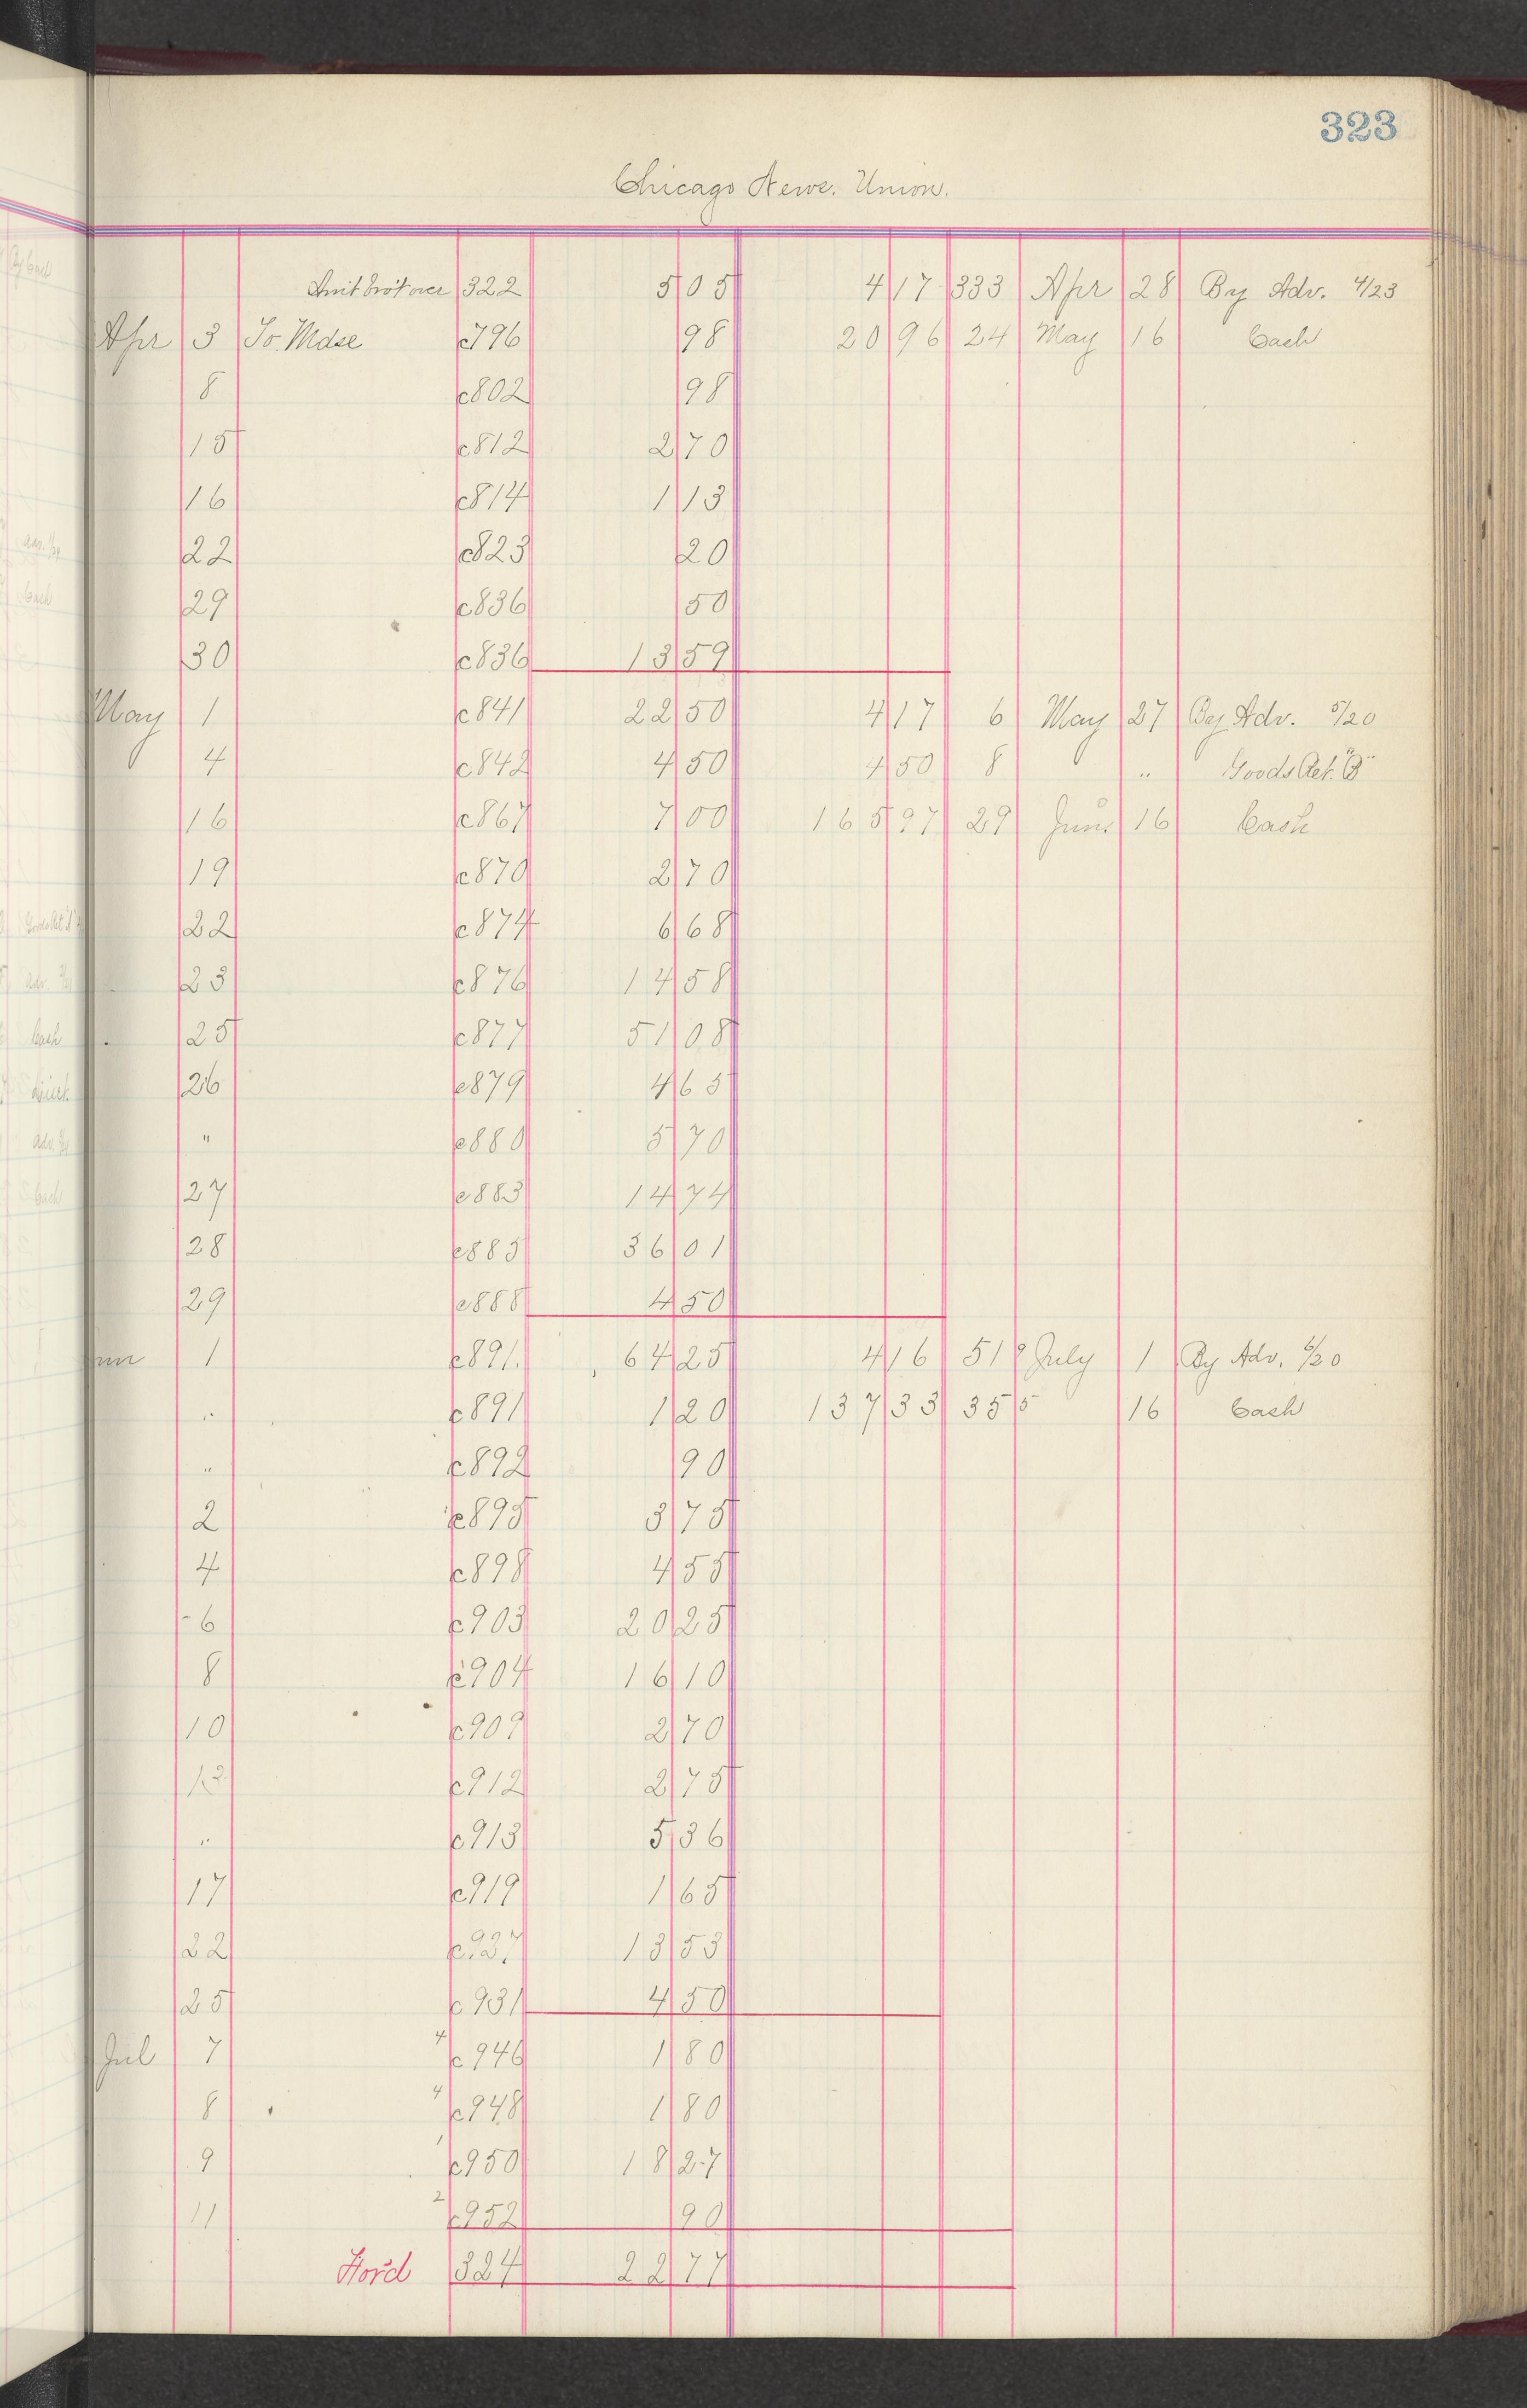 323
Chicago News. Union.
Amt brot over 322 5 05 4 17 333 Apr 28 By Adv. 4/23
Apr 3 To Mdse c796 98 20 96 24 May 16 Cash
8 c802 98
15 c812 2 70
16 c814 1 13
22 c823 20
29 c836 50
30 c836 13 59
May 1 c841 22 50 4 17 6 May 27 By Adv. 5/20
4 c842 4 50 4 50 8 " Goods Ret. "B"
16 c867 7 00 165 97 29 June 16 Cash
19 c870 2 70
22 c874 6 68
23 c876 14 58
25 c877 51 08
26 c879 4 65
" c880 5 70
27 c883 14 74
28 c885 36 01
29 c888 4 50
Jun 1 c891 64 25 4 16 519 July 1 By Adv. 6/20
" c891 1 20 137 33 355 16 Cash
" c892 90
2 c895 3 75
4 c898 4 55
6 c903 20 25
8 c904 16 10
10 c909 2 70
12 c912 2 75
" c913 5 36
17 c919 1 65
22 c927 13 53
25 c931 4 50
Jul 7 4 c946 1 80
8 4 c948 1 80
9 1 c950 18 27
11 2 c952 90
For'd 324 22 77